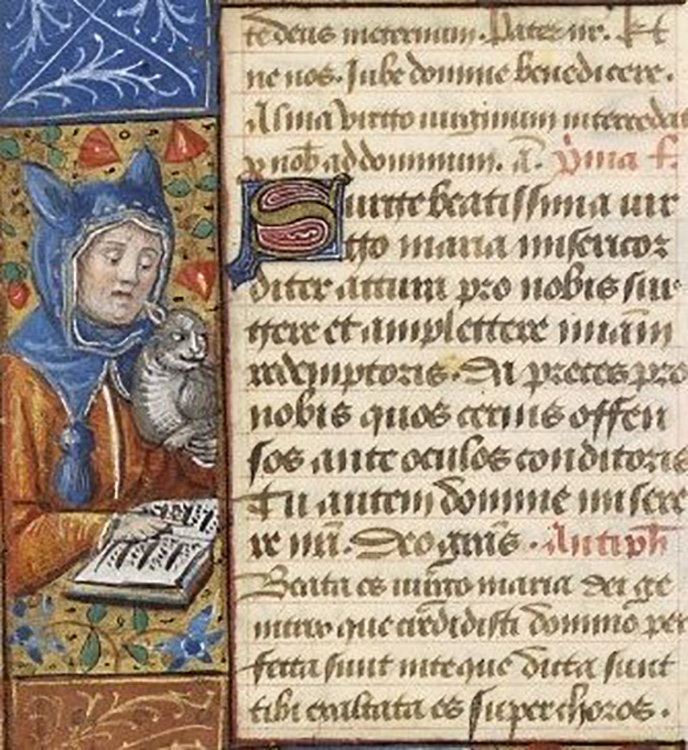 te deus in eternum. Pater nr. Et
ne nos. Iube domine benedicere.
Alma virgo virginum interceda
p nob ad dominum. a. Prima f.
Surge beatissima vir
go maria misericor
diter actura pro nobis sur
gere et amplettere
redemptoris. Da preces pro
nobis quos cernis offen
sos ante oculos conditoris
Tu autem domine misere
re ni. Deo gras. Antiph
Beata es virgo maria dei ge
nitrix que credidisti domino per
fecta sunt in te que dicta sunt
tibi exaltata es super choros.